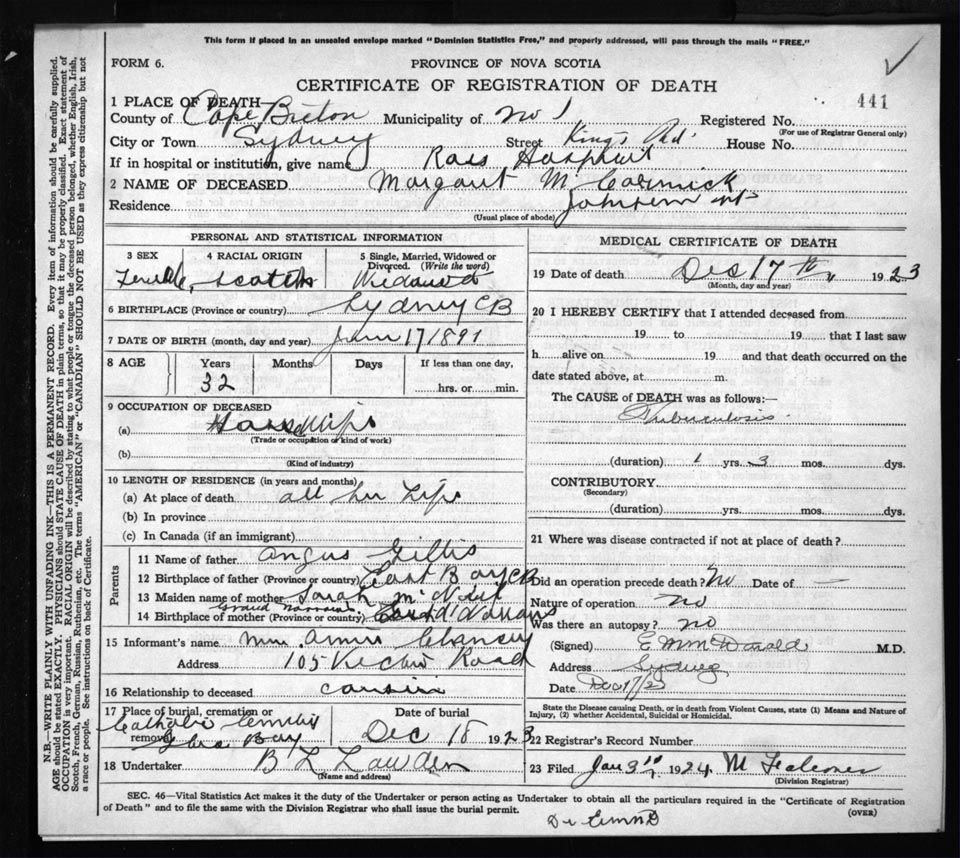 This form if placed in an unsealed envelope marked "Dominion Statistics Free," and properly addressed, will pass through the mails "FREE."
FORM 6. PROVINCE OF NOVA SCOTIA
CERTIFICATE OF REGISTRATION OF DEATH
441
1 PLACE OF DEATH
County of Cape Breton Municipality of No 1 Registered No.
(For use of Registrar General only)
City or Town Sydney Street Kings Rd House No.
If in hospital or institution, give name Ross Hospital
2 NAME OF DECEASED Margaret McCormick
Residence Johnston
(Usual place of abode)
PERSONAL AND STATISTICAL INFORMATION
3 SEX 4 RACIAL ORIGIN 5 Single, Married, Widowed or Divorced. (Write the word)
Female Scotch Widowed
6 BIRTHPLACE (Province or country) Sydney CB
7 DATE OF BIRTH (month, day and year) 17 1891
8 AGE Years Months Days If less than one day,
32 hrs. or min.
9 OCCUPATION OF DECEASED
(a) Housewife
(Trade or occupation or kind of work)
(b)
(Kind of industry)
10 LENGTH OF RESIDENCE (in years and months)
(a) At place of death all her Life
(b) In province
(c) In Canada (if an immigrant)
Parents
11 Name of father Angus Gillis
12 Birthplace of father (Province or country) East Bay CB
13 Maiden name of mother Sarah McNeil
Grand Narrows
14 Birthplace of mother (Province or country) Grand Narrows
15 Informant's name Mrs Clancey
Address 105 Road
16 Relationship to deceased cousin
17 Place of burial, cremation or removal Date of burial
Catholic
Glace Bay Dec 18 1923
18 Undertaker B L
(Name and address)
MEDICAL CERTIFICATE OF DEATH
19 Date of death Dec 17th 1923
(Month, day and year)
20 I HEREBY CERTIFY that I attended deceased from
19 to 19 that I last saw
h alive on 19 and that death occurred on the
date stated above, at m.
The CAUSE of DEATH was as follows:—
Tuberculosis
(duration) 1 yrs. 3 mos. dys.
CONTRIBUTORY
(Secondary)
(duration) yrs. mos. dys.
21 Where was disease contracted if not at place of death?
Did an operation precede death? No Date of —
Nature of operation no
Was there an autopsy? no
(Signed) E M McDonald M.D.
Address Sydney
Date Dec 17/23
State the Disease causing Death, or in death from Violent Causes, state (1) Means and Nature of
Injury, (2) whether Accidental, Suicidal or Homicidal.
22 Registrar's Record Number
23 Filed Jan 3rd 1924 M Falconer
(Division Registrar)
SEC. 46—Vital Statistics Act makes it the duty of the Undertaker or person acting as Undertaker to obtain all the particulars required in the "Certificate of Registration
of Death" and to file the same with the Division Registrar who shall issue the burial permit.
(OVER)
N.B.—WRITE PLAINLY WITH UNFADING INK—THIS IS A PERMANENT RECORD. Every item of information should be carefully supplied.
AGE should be stated EXACTLY. PHYSICIANS should STATE CAUSE OF DEATH in plain terms, so that it may be properly classified. Exact statement of
OCCUPATION is very important. RACIAL ORIGIN will be described by stating to what people or tongue the deceased person belonged, whether English, Irish,
Scotch, French, German, Russian, Ruthenian, etc. The terms "AMERICAN" or "CANADIAN" SHOULD NOT BE USED as they express citizenship but not
a race or people. See instructions on back of Certificate.